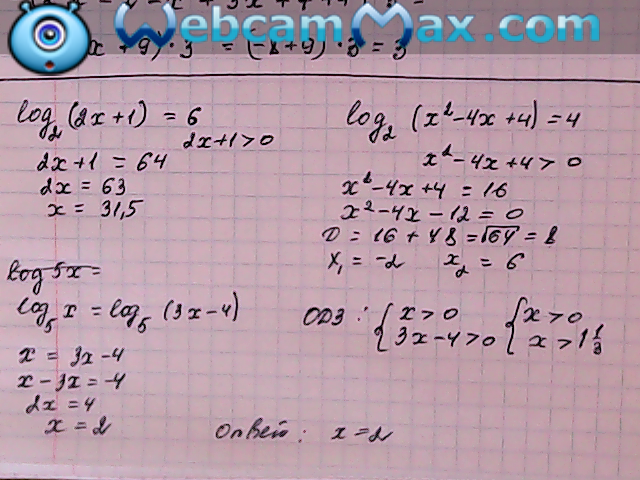 WebcamMax.com
x + 9) · 3 = (-8+9) · 3 = 3
log₂(2x+1) = 6
2x+1>0
2x+1 = 64
2x = 63
x = 31,5
log₂ (x²-4x+4) = 4
x²-4x+4 > 0
x²-4x+4 = 16
x²-4x-12 = 0
D = 16 + 48 = √64 = 8
x₁ = -2 x₂ = 6
log 5x =
log₅ x = log₅ (3x-4)
ОДЗ : { x>0 { x>0
3x-4>0 x>1 1/3
x = 3x-4
x-3x = -4
2x = 4
x = 2
Ответ: x = 2